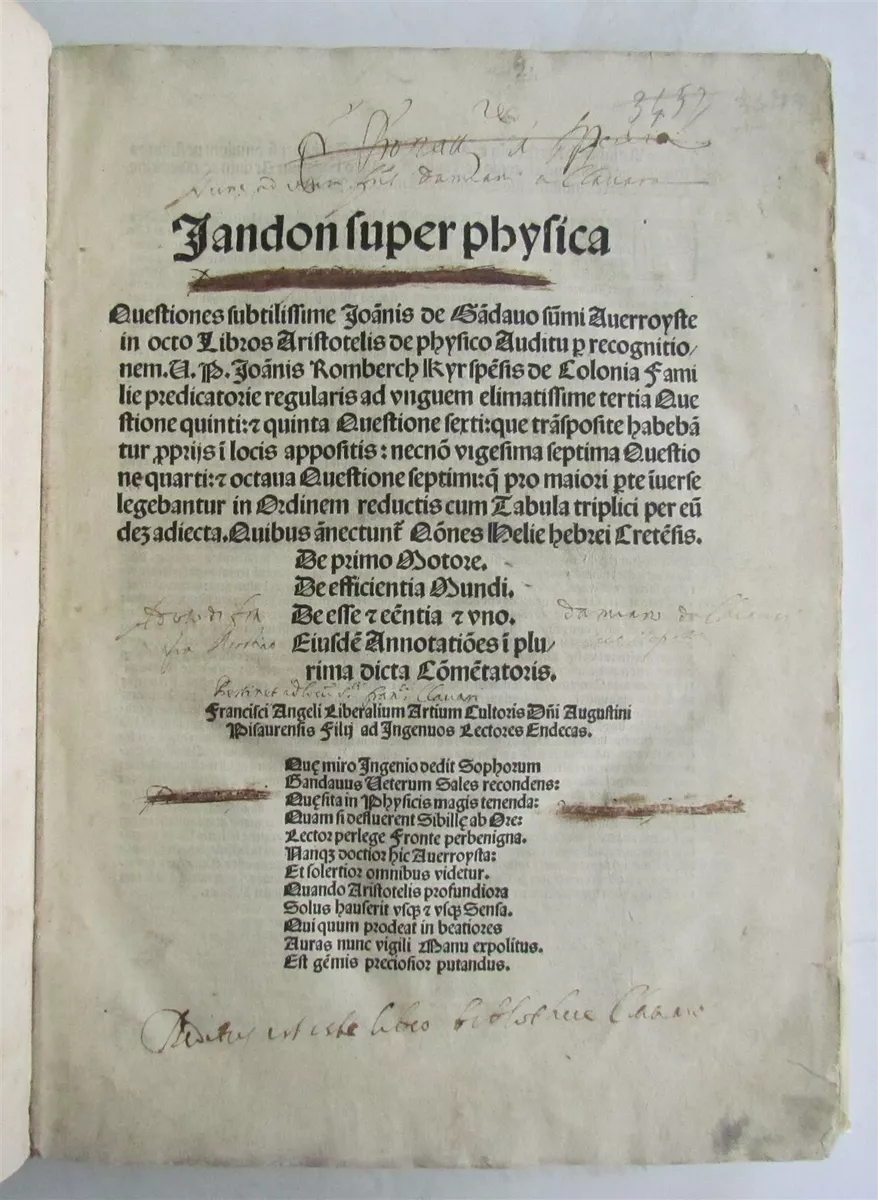 3457
Jandoñ super physica
Questiones subtilissime Joãnis de Gãdauo sũmi Auerroyste
in octo Libros Aristotelis de physico Auditu ꝑ recognitio/
nem. U. P. Joãnis Romberch Kyrspẽsis de Colonia Fami
lie predicatorie regularis ad vnguem elimatissime tertia Que
stione quinti: ⁊ quinta Questione sexti: que trãsposite habebã
tur ꝓprijs ĩ locis appositis: necnõ vigesima septima Questio
ne quarti: ⁊ octaua Questione septimi: q̃ pro maiori ꝑte ĩuerse
legebantur in Ordinem reductis cum Tabula triplici per eũ
deꝫ adiecta. Quibus ãnectunt̃ Qõnes Helie hebrei Cretẽsis.
De primo Motore.
De efficientia Mundi.
De esse ⁊ eẽntia ⁊ vno.
Eiusdẽ Annotatiões ĩ plu/
rima dicta Cõmẽtatoris.
Francisci Angeli Liberalium Artium Cultoris Dñi Augustini
Pisaurensis Filij ad Ingenuos Lectores Endecas.
Quę miro Ingenio dedit Sophorum
Gandauus Ueterum Sales recondens:
Quęsita in Physicis magis tenenda:
Quam si defluerent Sibillę ab Ore:
Lector perlege Fronte perbenigna.
Nanqꝫ doctior hic Auerroysta:
Et solertior omnibus videtur.
Quando Aristotelis profundiora
Solus hauserit vsqꝫ ⁊ vsqꝫ Sensa.
Qui quum prodeat in beatiores
Auras nunc vigili Manu expolitus.
Est gẽmis preciosior putandus.
est iste liber bibliothece